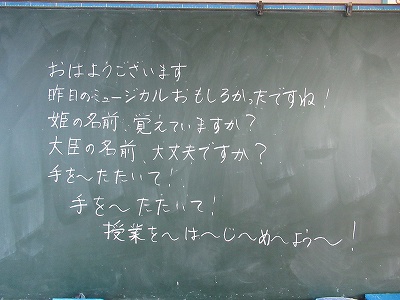 おはようございます
昨日のミュージカルおもしろかったですね!
姫の名前、覚えていますか?
大臣の名前、大丈夫ですか?
手を〜たたいて!
手を〜たたいて!
授業を〜は〜じ〜め〜よう〜!